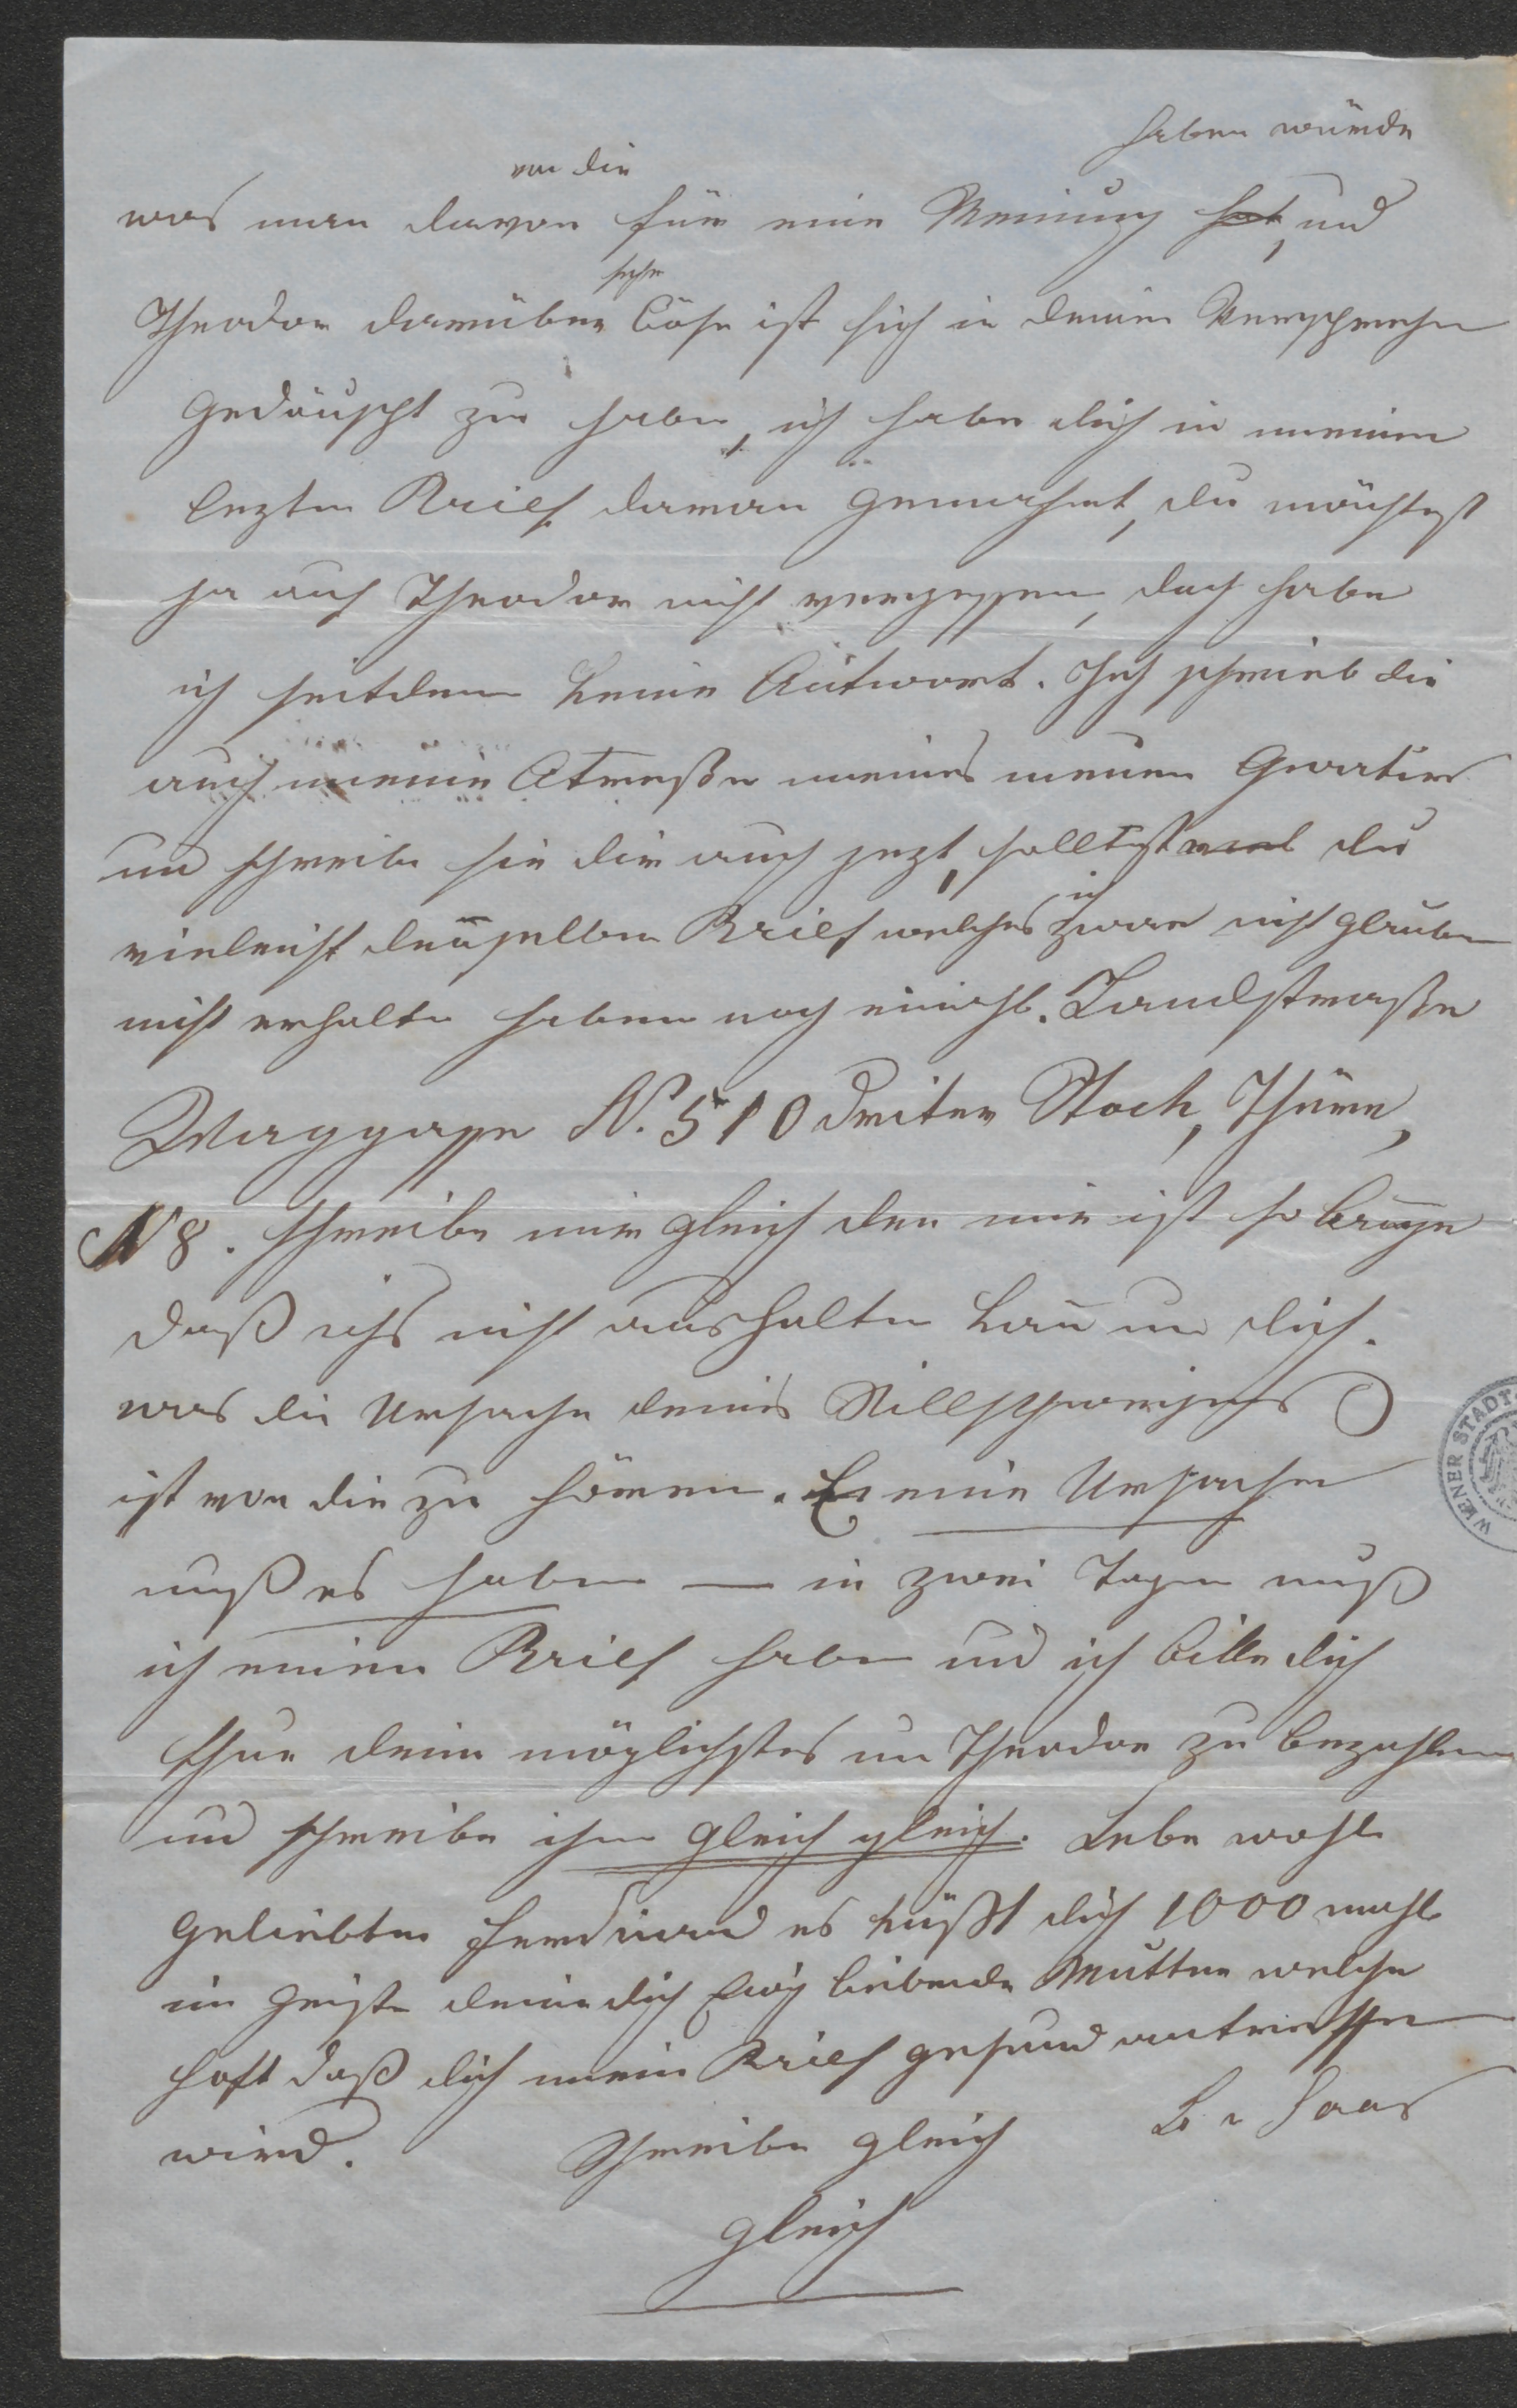 haben würde
von dir
was man davon für eine Meinung hat, und
sehr
Theodor darüber böse ist sich in deinen Versprechen
Gedäuscht zu haben, ich habe dich in meinem
lezten Brief daran gemahnt, du möchtest
ja auch Theodor nicht vergessen, doch habe
ich seitdem keine Antwort. Ich schrieb dir
auch meine Atreße meines neuen Quartirs
und schreibe sie dir auch jezt, solltest du
ich
vieleicht denselben Brief welches zwar nicht glaube
nicht erhalten haben noch einmahl. Landstrasse
Waggasse N. 510 driter Stock, Thüre,
N 8. schreibe mir gleich den mir ist so bange
daß ichs nicht aushalten kan̄ um dich.
was die Ursache deines Stillschweigens
ist von dir zu hören. Er eine Ursache
muß es haben — in zwei Tagen muß
ich einen Brief haben und ich bitte dich
thue dein möglichstes um Theodor zu bezahlen
und schreibe ihm gleich gleich. Lebe wohl
geliebter Ferdinand es küßt dich 1000 mahl
im Geiste deine dich Ewig liebende Mutter welche
hoft daß dich mein Brief gesund antreffen
wird. Schreibe gleich B v Saar
gleich
WIENER STADT